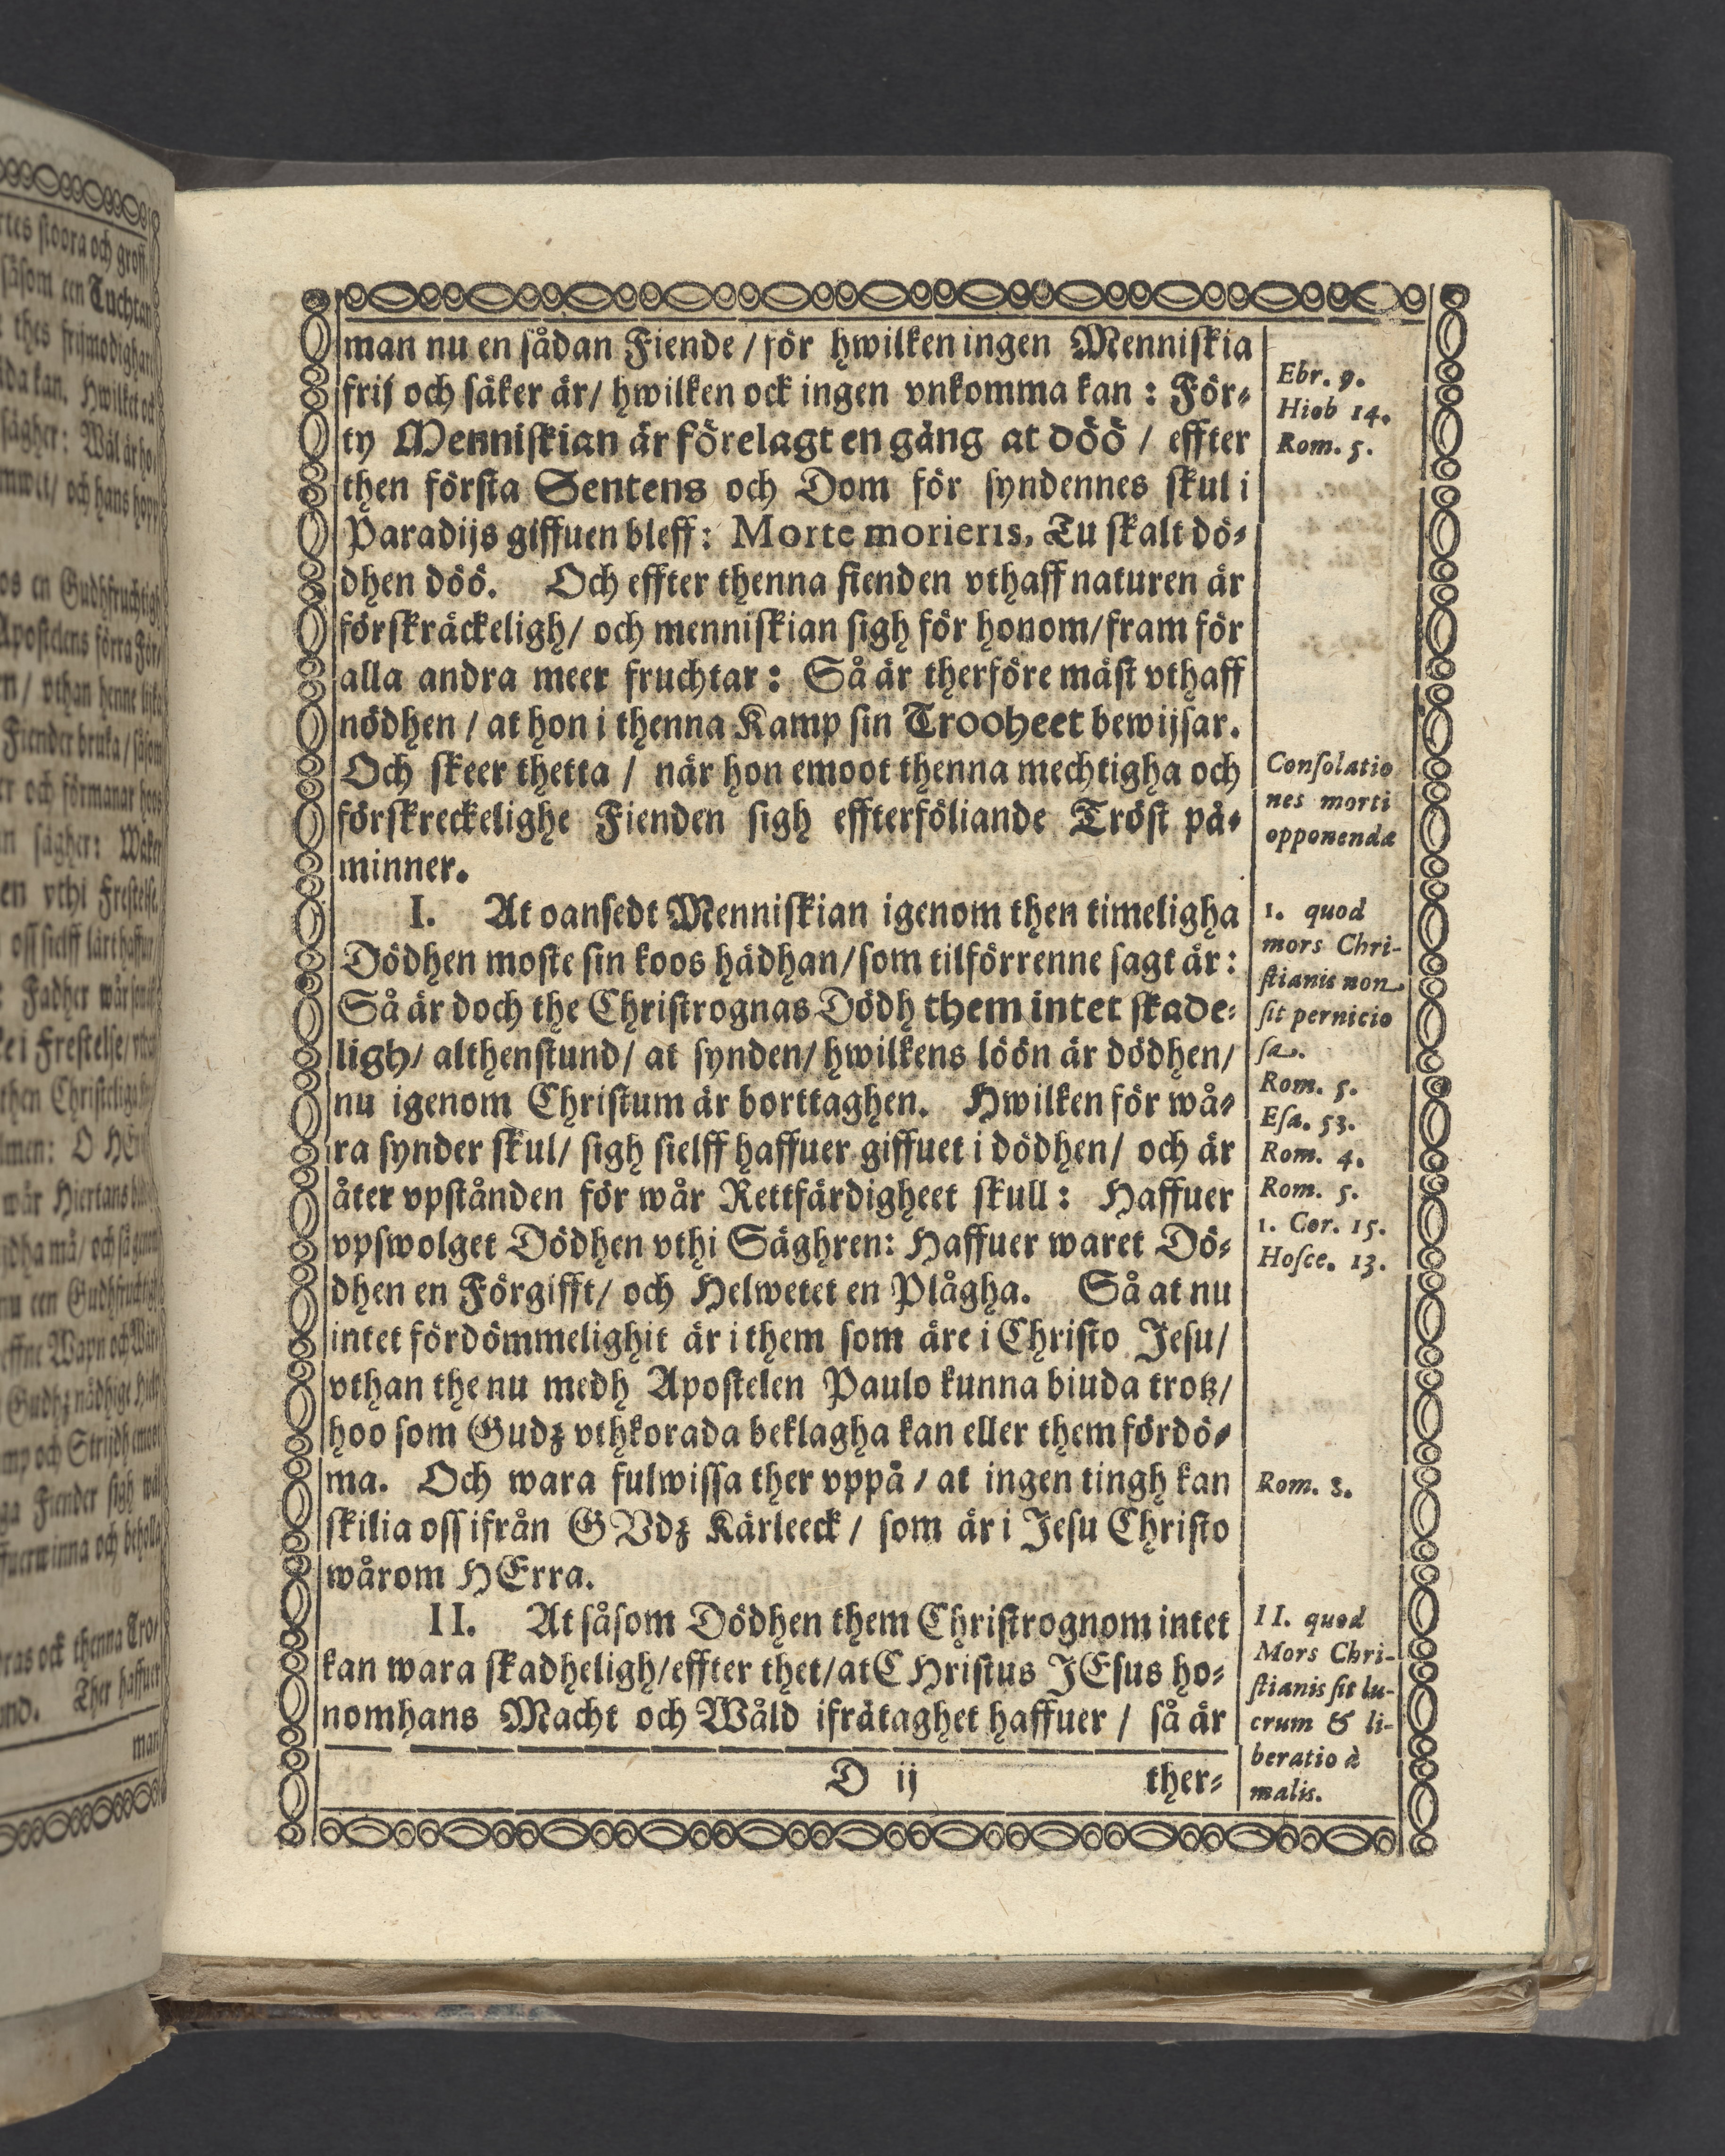 man nu en sådan Fiende / för hwilken ingen Menniſkia
frij och ſäker är / hwilken ock ingen vnkomma kan : För-
ty Menniſkian är förelagt en gång at döö / effter
then förſta Sentens och Dom för ſyndennes ſkul i
Paradijs giffuen bleff : Morte morieris, Tu ſkalt dö-
dhen döö. Och effter thenna fienden vthaff naturen är
förſkräckeligh / och menniſkian ſigh för honom / fram för
alla andra meer fruchtar : Så är therföre mäſt vthaff
nödhen / at hon i thenna Kamp ſin Trooheet bewijſar.
Och ſkeer thetta / när hon emoot thenna mechtigha och
förſkreckelighe Fienden ſigh effterföliande Tröſt på-
minner.
I. At oanſedt Menniſkian igenom then timeligha
Dödhen moſte ſin koos hädhan / ſom tilförrenne ſagt är :
Så är doch the Chriſtrognas Dödh them intet ſkade-
ligh / althenſtund / at ſynden / hwilkens löön är dödhen /
nu igenom Chriſtum är borttaghen. Hwilken för wå-
ra ſynder ſkul / ſigh ſielff haffuer giffuet i dödhen / och är
åter vpſtånden för wår Rettfärdigheet ſkull : Haffuer
vpſwolget Dödhen vthi Säghren : Haffuer waret Dö-
dhen en Förgifft / och Helwetet en Plågha. Så at nu
intet fördömmelighit är i them ſom äre i Chriſto Jeſu /
vthan the nu medh Apoſtelen Paulo kunna biuda trotz /
hoo ſom Gudz vthkorada beklagha kan eller them fördö-
ma. Och wara fulwiſſa ther vppå / at ingen tingh kan
ſkilia oſſ ifrån GVdz Kärleeck / ſom är i Jeſu Chriſto
wårom HErra.
II. At såſom Dödhen them Chriſtrognom intet
kan wara ſkadheligh / effter thet / at CHriſtus JEſus ho-
nom hans Macht och Wåld ifrätaghet haffuer / så är
D ij ther-
Ebr. 9.
Hiob 14.
Rom. 5.
Conſolatio
nes morti
opponendæ
1. quod
mors Chri-
ſtianis non
ſit pernicio
ſa.
Rom. 5.
Eſa. 53.
Rom. 4.
Rom. 5.
1. Cor. 15.
Hoſce. 13.
Rom. 8.
II. quod
Mors Chri-
ſtianis ſit lu-
crum & li-
beratio à
malis.